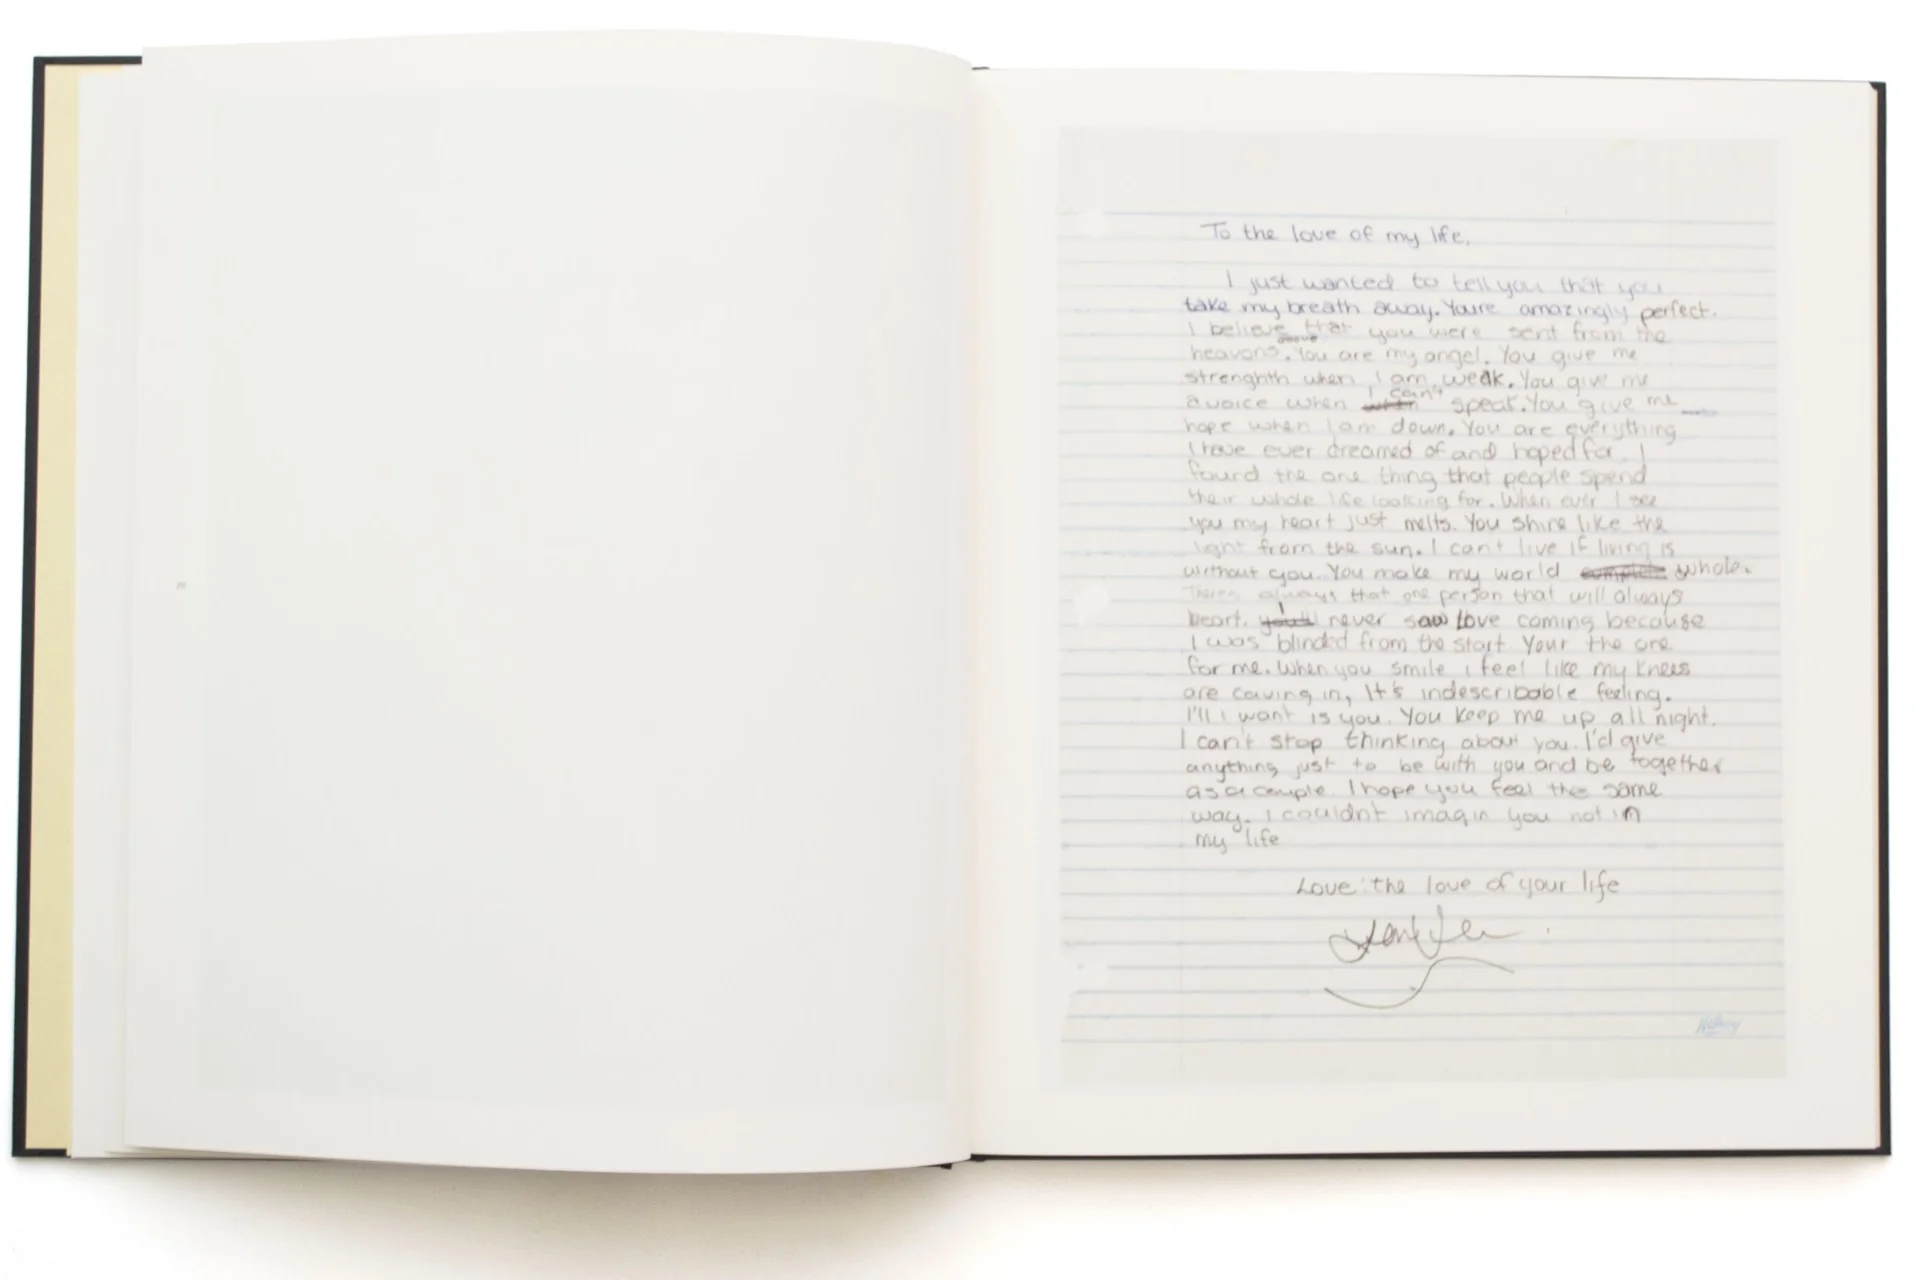 To the love of my life,
I just wanted to tell you that you
take my breath away. Youre amazingly perfect.
I believe that you were sent from the
above
heavens. You are my angel. You give me
strenghth when I am weak. You give me
I can't
a voice when when speak. You give me
hope when I am down. You are everything
I have ever dreamed of and hoped for. I
found the one thing that people spend
their whole life looking for. When ever I see
you my heart just melts. You shine like the
light from the sun. I can't live if living is
without you. You make my world complete whole.
Theres always that one person that will always
beort. I never saw love coming because
I was blinded from the start. Your the one
for me. When you smile i feel like my knees
are caving in, It's indescribable feeling.
I'll i want is you. You keep me up all night.
I can't stop thinking about you. I'd give
anything just to be with you and be together
as a couple. I hope you feel the same
way. i couldn't imagin you not in
my life
Love: the love of your life
Hilroy